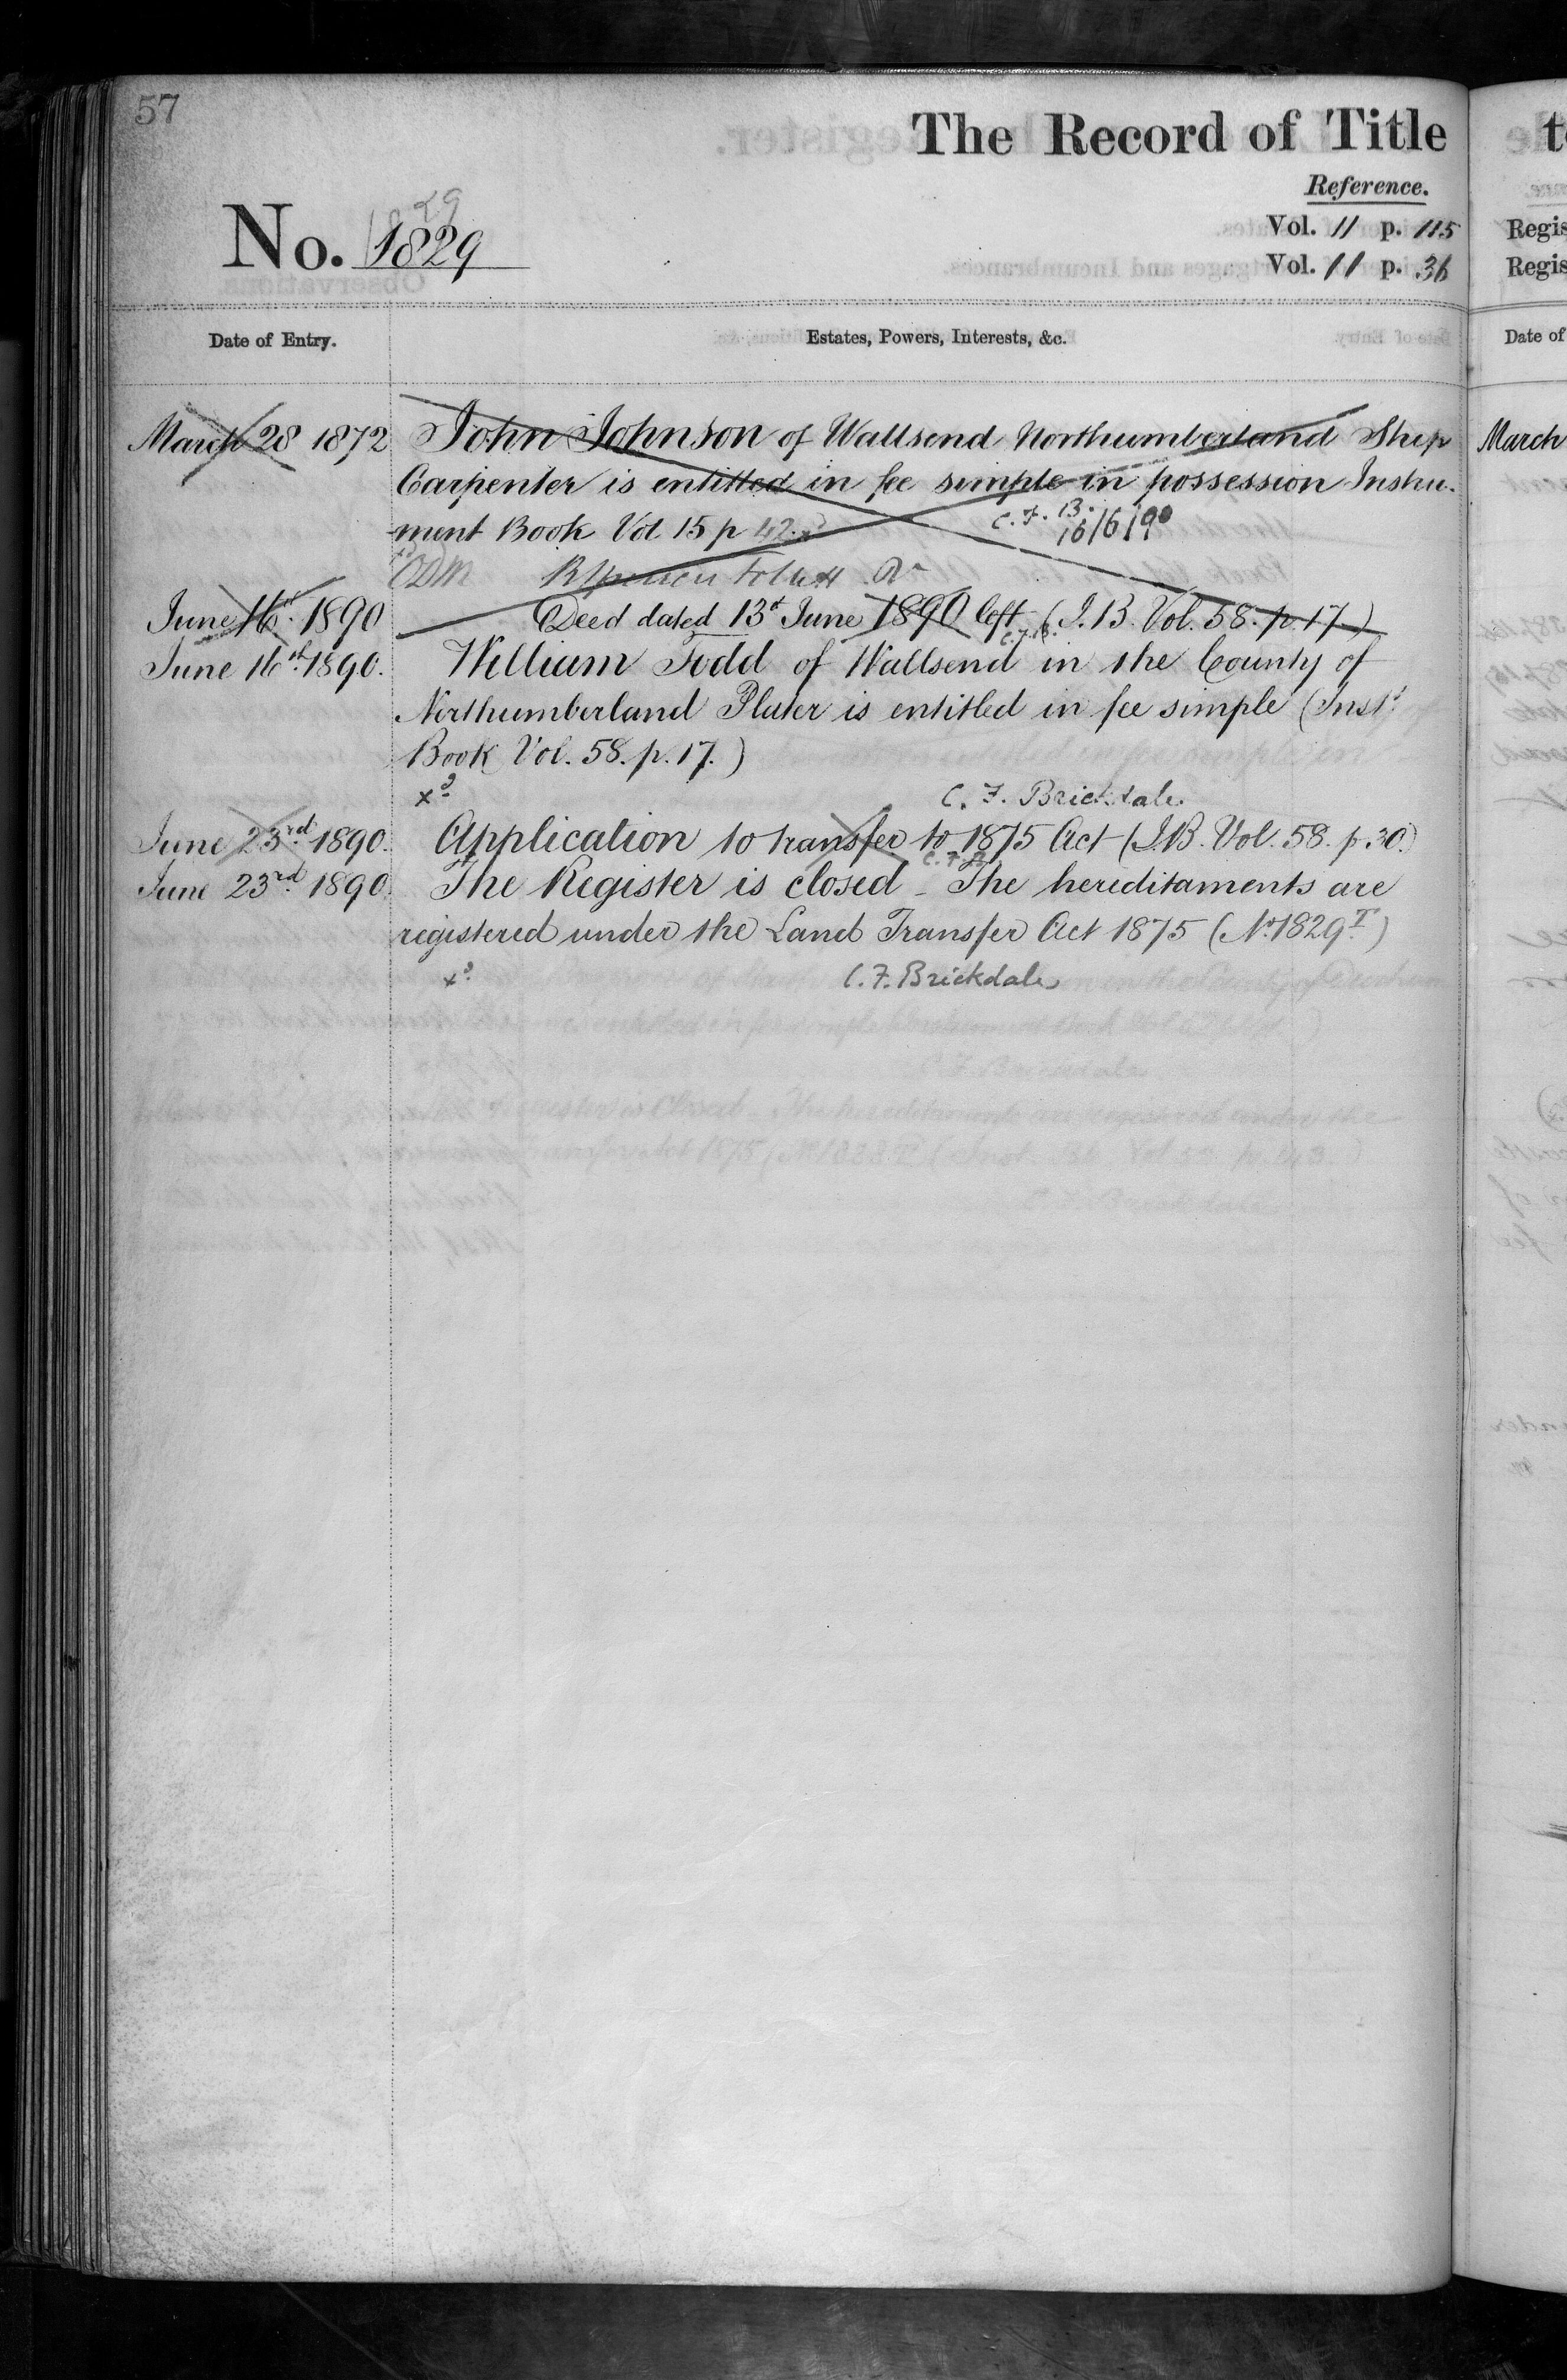 57
The Record of Title
Reference.
29
No. 1829
Vol. 11 p. 115
Vol. 11 p. 36
Date of Entry.
Estates, Powers, Interests, &c.
March 28 1872 John Johnson of Wallsend Northumberland Ship
Carpenter is entitled in fee simple in possession Instru-
ment Book Vol 15 p 42.
C. F. B.
16/6/90
June 16th 1890 Deed dated 13th June 1890 left (I.B. Vol. 58. p. 17)
C.F.B.
June 16th 1890. William Todd of Wallsend in the County of
Northumberland Plater is entitled in fee simple (Inst.t
Book Vol. 58. p. 17.)
xd C. F. Brickdale
June 23rd 1890. Application to transfer to 1875 Act (I.B. Vol. 58. p. 30.)
C.F.B.
June 23rd 1890. The Register is closed - The hereditaments are
registered under the Land Transfer Act 1875 (No. 1829T.)
xd C. F. Brickdale
t
Regis
Regis
Date of
March